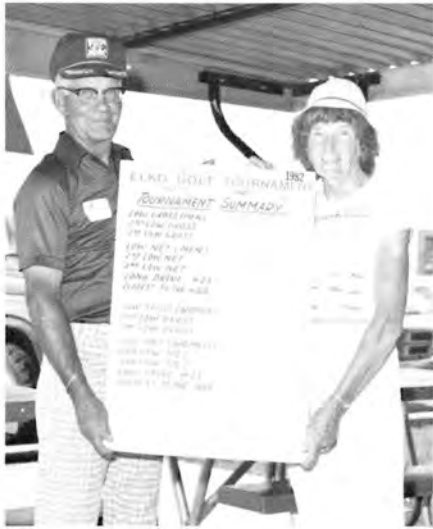 1982
ELKO GOLF TOURNAMENT
TOURNAMENT SUMMARY
LOW GROSS (MEN)
2ND LOW GROSS
3RD LOW GROSS
LOW NET (MEN)
2ND LOW NET
3RD LOW NET
LONG DRIVE
CLOSEST TO THE
LOW GROSS (WOMEN)
2ND LOW GROSS
3RD LOW GROSS
LOW NET (WOMEN)
2ND LOW NET
3RD LOW NET
LONG DRIVE
CLOSEST TO THE